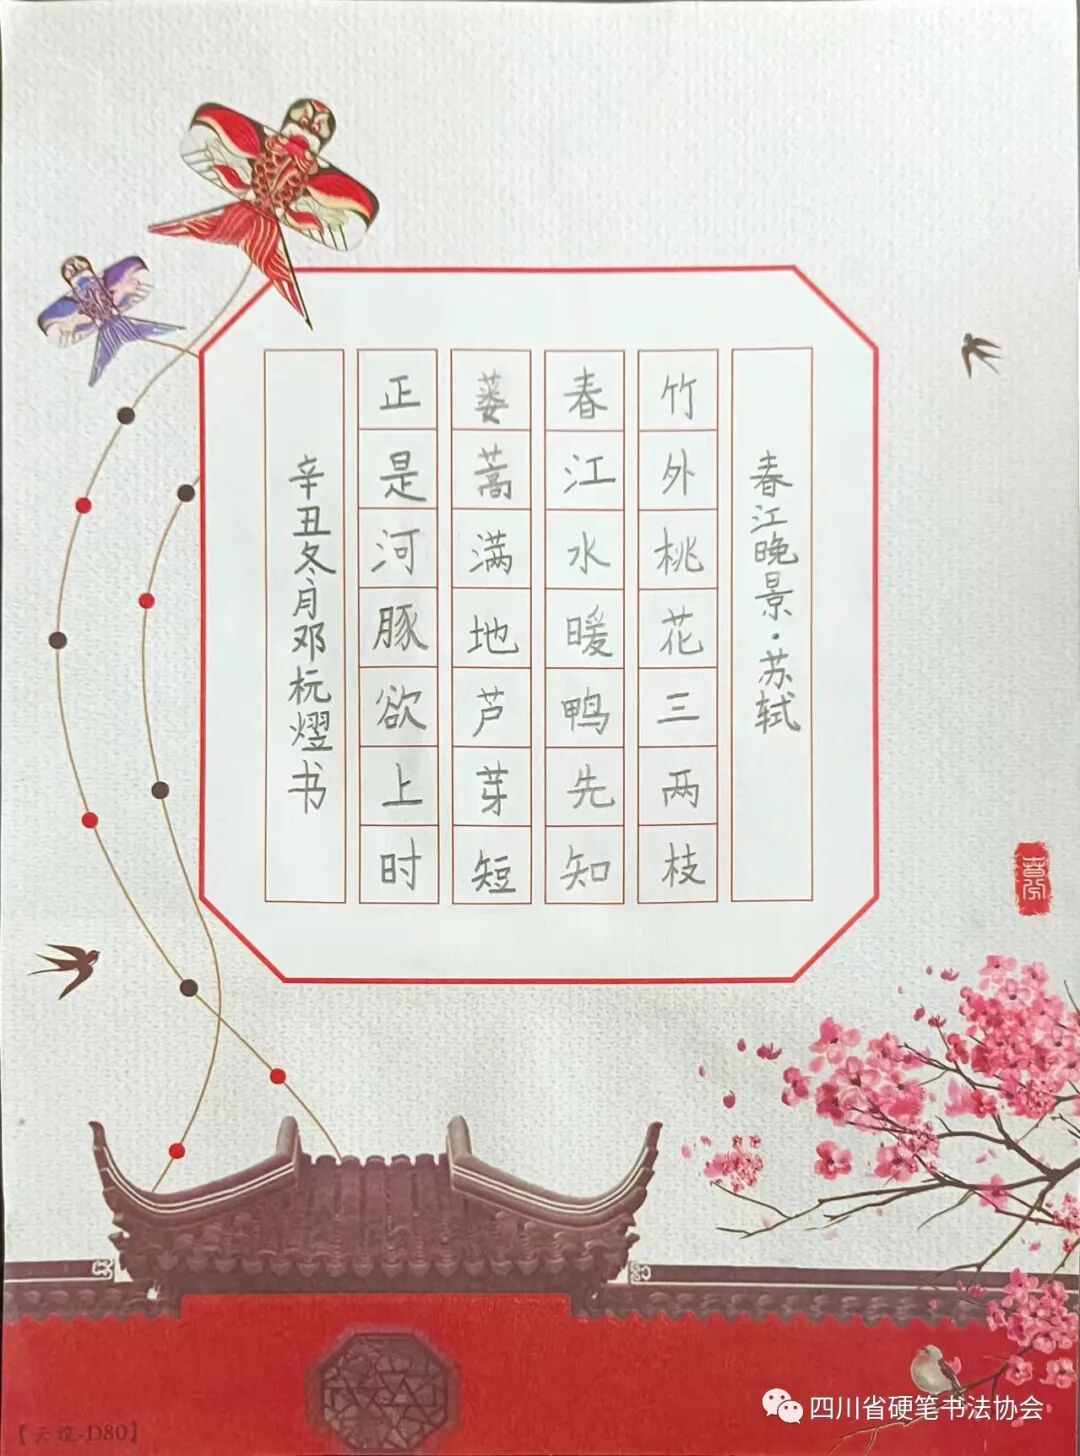 春江晚景·苏轼
竹外桃花三两枝
春江水暖鸭先知
蒌蒿满地芦芽短
正是河豚欲上时
辛丑冬月邓杬熠书
四川省硬笔书法协会
-D80】